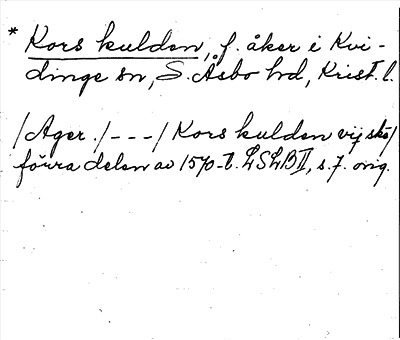 * Kors kulden, f. åker i Kvi-
dinge sn, S. Åsbo hd, Krist. l.
/Ager./---/Kors kulden vij skö/
förra delen av 1570-t. LSLB II, s. 7. orig.